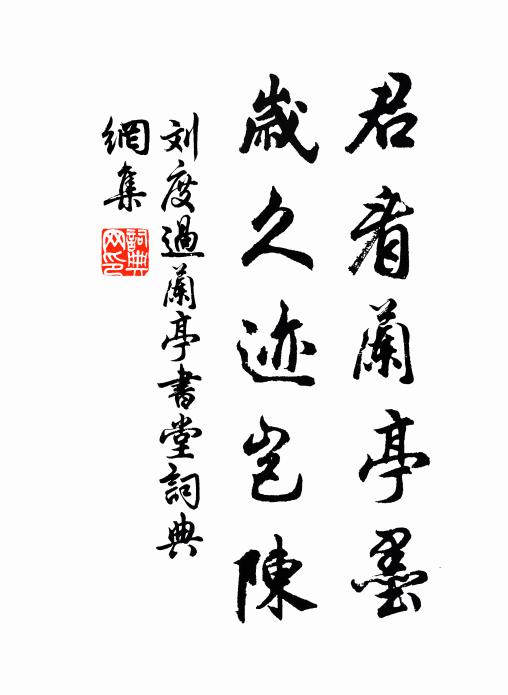 君看蘭亭墨
歲久迹豈陳
刘度過蘭亭書堂詞典
網集
詞典
网印